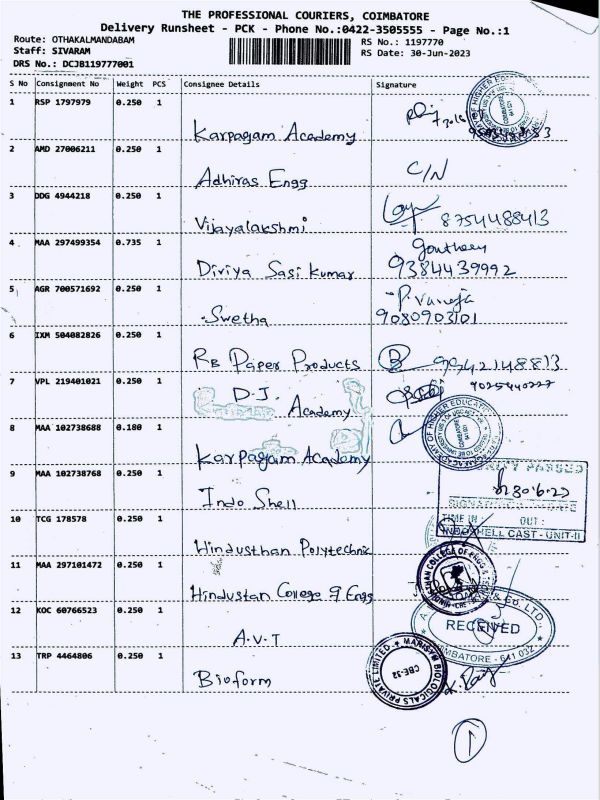 THE PROFESSIONAL COURIERS, COIMBATORE
Delivery Runsheet - PCK - Phone No.:0422-3505555 - Page No.:1
Route: OTHAKALMANDABAM
RS No.: 1197770
Staff: SIVARAM
RS Date: 30-Jun-2023
DRS No.: DCJB119777001
S No Consignment No Weight PCS Consignee Details Signature
1 RSP 1797979 0.250 1
Karpagam Academy
2 AMD 27006211 0.250 1
Adhiras Engg C/N
3 DDG 4944218 0.250 1
Vijayalakshmi 8754488413
4 MAA 297499354 0.735 1
Diviya Sasi Kumar 9384439992
5 AGR 700571692 0.250 1
Swetha 9080903101
6 IXM 504082826 0.250 1
RB Paper Products 9942148813
7 VPL 219401021 0.250 1 9025440227
D.J. Academy
8 MAA 102738688 0.180 1
Karpagam Academy
9 MAA 102738768 0.250 1
Indo Shell
30.6.23
TIME IN : OUT :
INDOSHELL CAST - UNIT-II
10 TCG 178578 0.250 1
Hindusthan Polytechnic
11 MAA 297101472 0.250 1
Hindustan College of Engg
12 KOC 60766523 0.250 1
A.V.T
& Co. LTD.
RECEIVED
COIMBATORE - 641 032
13 TRP 4464806 0.250 1
Bioform
BIOLOGICALS PRIVATE LIMITED
CBE-32
1